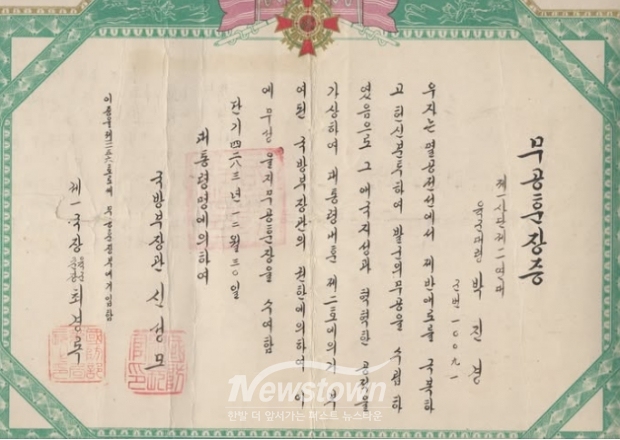 무공훈장증
제一사단 제一二연대
육군대령 박진경
군번 一00九一
우자는 멸공전선에서 제반애로를 극복하
고 헌신분투하여 발군의 무공을 수립하
였음으로 그 애국지성과 혁혁한 공적을
가상하여 대통령내훈 제二호에 의거 부
여된 국방부장관의 권한에 의하여 이
에 무성 을지무공훈장을 수여함
단기 四二八三년 一二월 三0일
대통령 명에 의하여
국방부장관 신성모
제一국장
Newstown
한발 더 앞서가는 퍼스트 뉴스타운